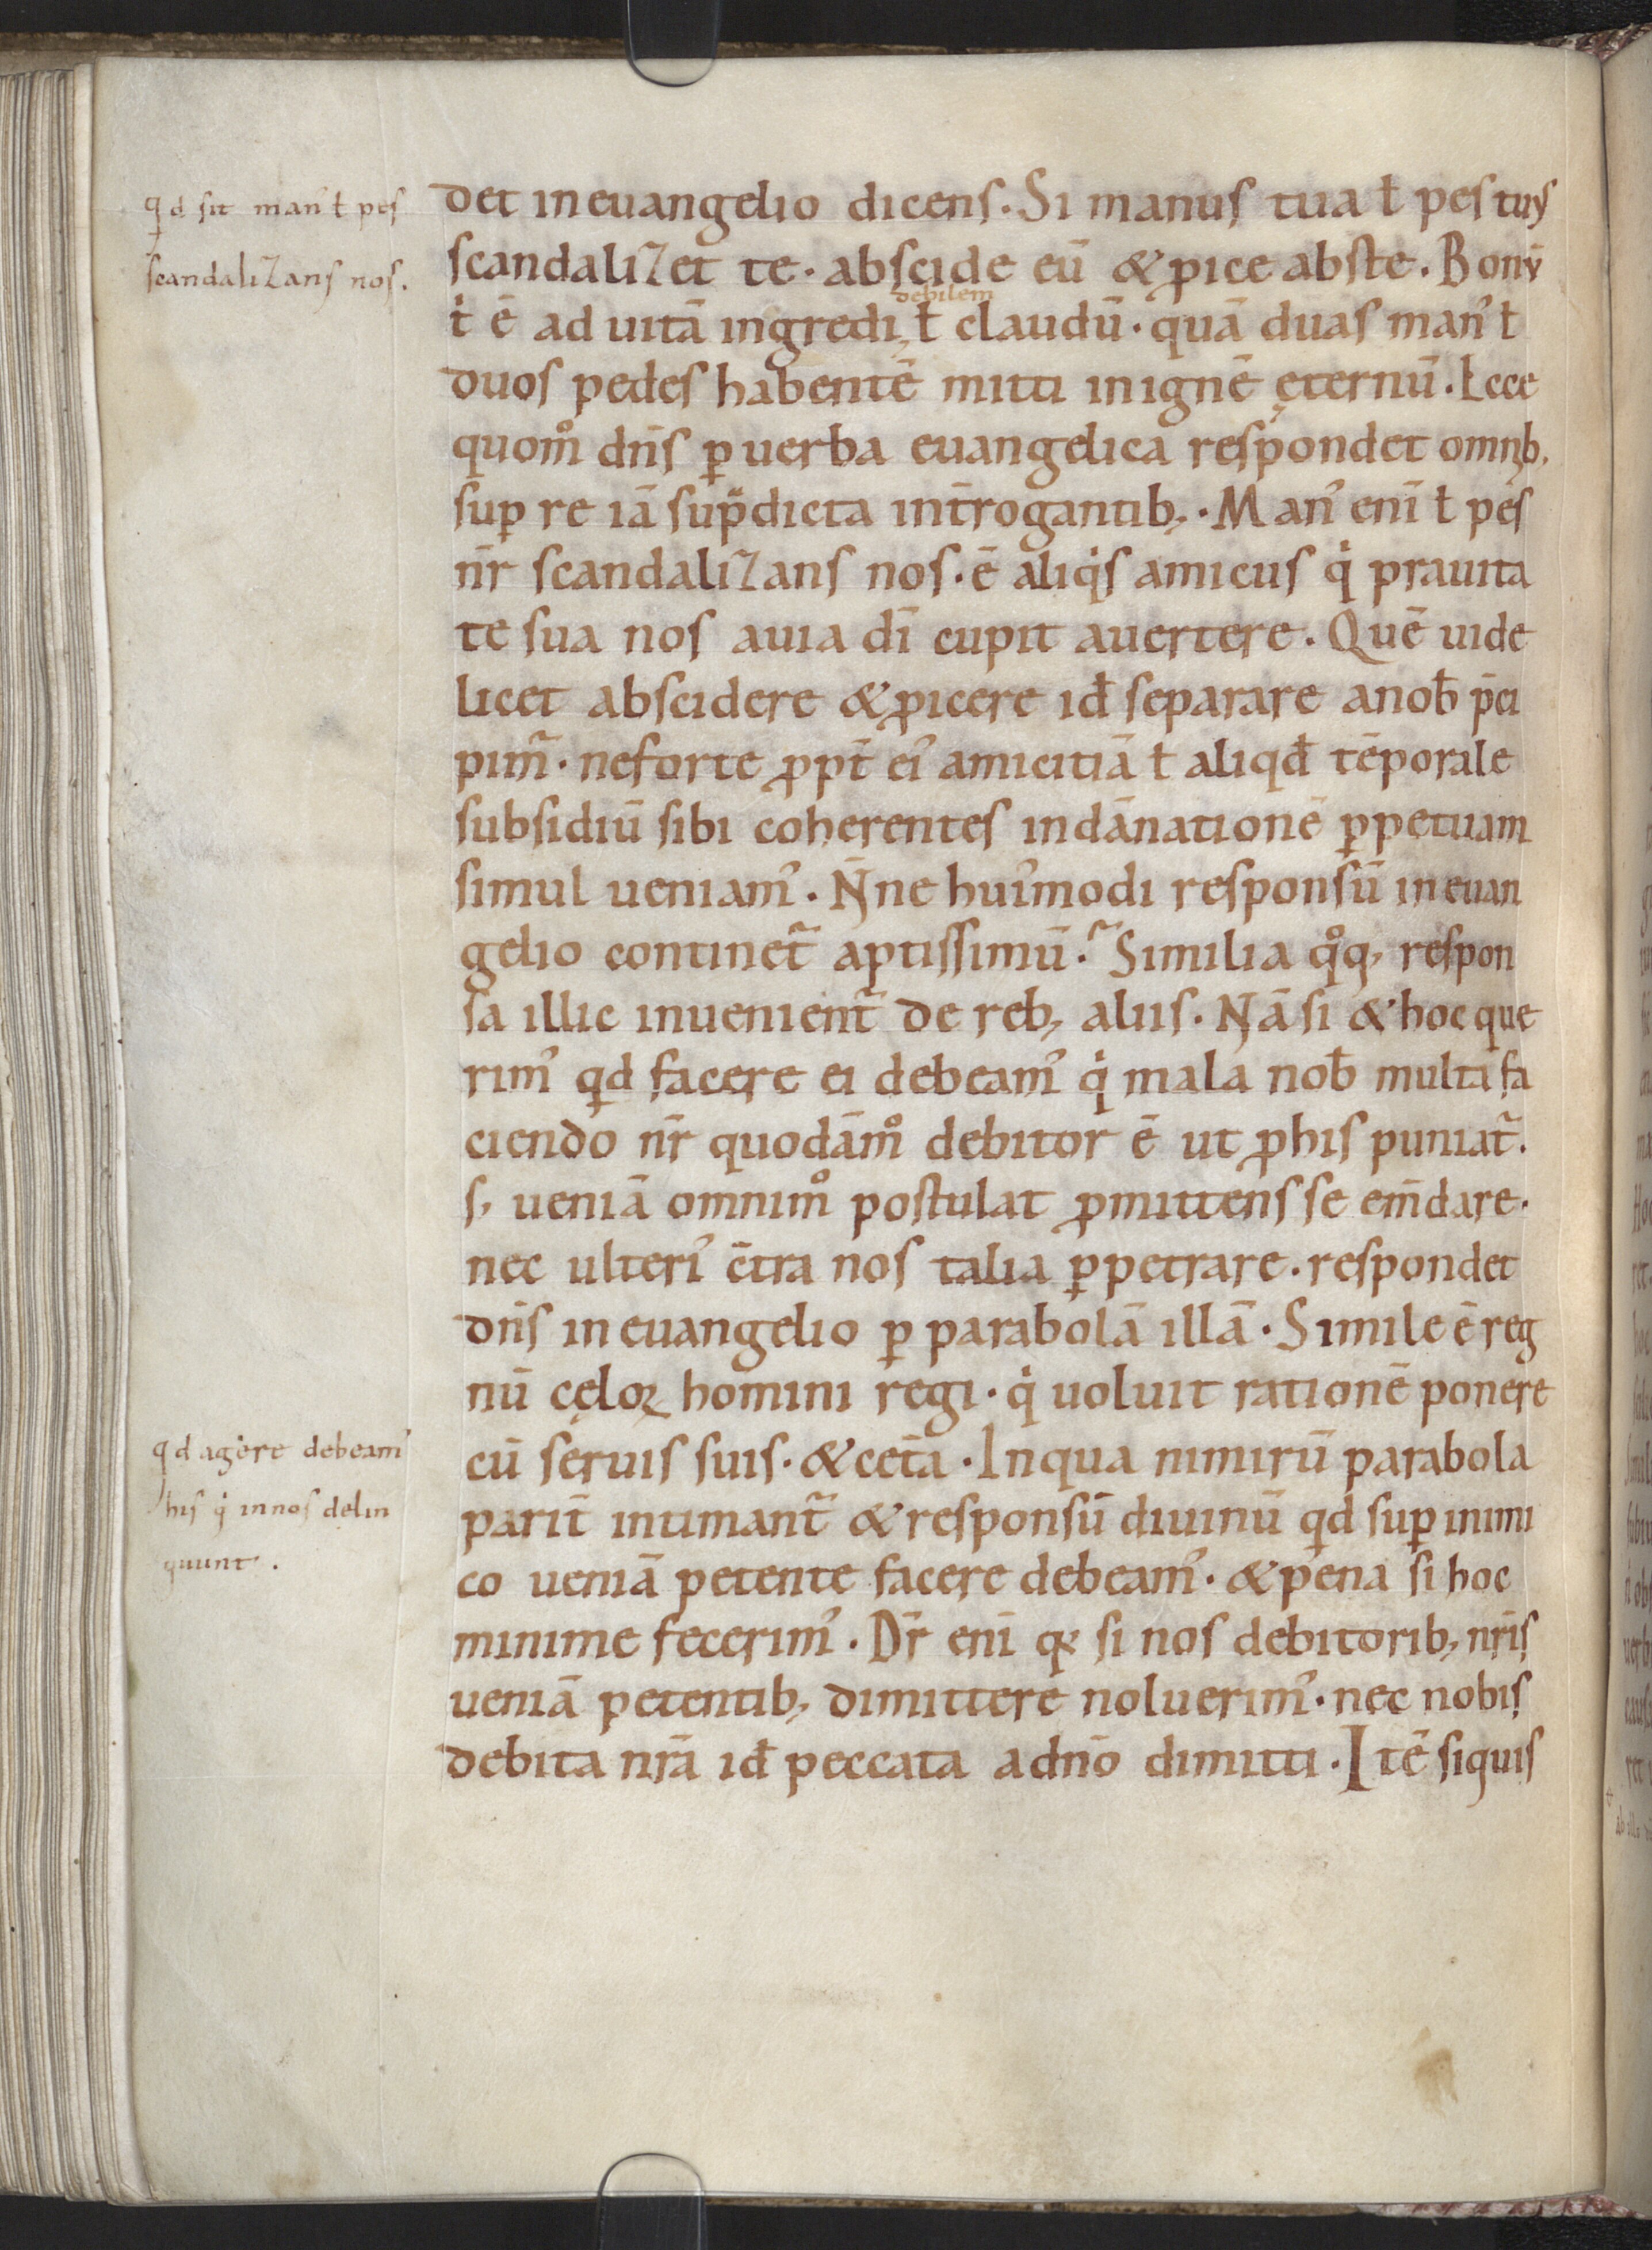 qd sit man᾽ ł pes
scandalizans nos.
det in euangelio dicens. Si manus tua ł pes tuꝰ
scandalizet te. abscide eū & ꝓice abs te. Bonū
debilem
t̍ ē ad uitā ingredi, ł claudū. quā duas man᾽ ł
duos pedes habentē mitti in ignē ęternū. Ecce
quom̊ dn̄s ꝑ uerba euangelica respondet omnib,
suꝑ re iā sup̄dicta int̄rogantib;. Man᾽ enī ł pes
nr̄ scandalizans nos. ē aliq̍s amicus q̍ prauita
te sua nos a uia dī cupit auertere. Quē uide
licet abscidere & ꝓicere id̄ separare a nob̄ p̄ci
pim̃. ne forte ꝓpt̄ ei᾽ amicitiā ł aliqd̄ tēporale
subsidiū sibi coherentes in dānationē ꝑpetuam
simul ueniam᾽. N̄ne hui᾽modi responsū in euan
gelio continet̃ aptissimū.᷉ Similia q̊q; respon
sa illic inuenient̃ de reb; aliis. Nā si & hoc que
rim᾽ qd facere ei debeam᾽ q̍ mala nob̄ multa fa
ciendo nr̄ quodām̊ debitor ē ut ꝓ his puniat̃.
s; ueniā omnim̊ postulat ꝓmittens se em̄dare.
nec ulteri᾽ c̄tra nos talia ꝑpetrare. respondet
dn̄s in euangelio ꝑ parabolā illā. Simile ē reg
nū cęloꝝ homini regi. q̍ uoluit rationē ponere
cū seruis suis. & cet̄a. In qua nimirū parabola
parit̄ intimant̃ & responsū diuinū qd suꝑ inimi
co ueniā petente facere debeam᾽. & pena si hoc
minime fecerim᾽. Dr̄ enī qꝫ si nos debitorib; nr̄is
ueniā petentib; dimittere noluerim᾽. nec nobis
debita nr̄a id̄ peccata a dn̄o dimitti. Itē siquis
qd agere debeam᾽
his q̍ in nos delin
quunt.